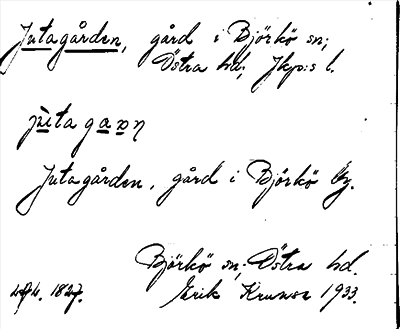 Jutagården, gård i Björkö sn;
Östra hd; Jkp:s l.
jùta gaɒη
Jutagården, gård i Björkö by.
Björkö sn; Östra hd.
1827. Erik Kruuse 1933.